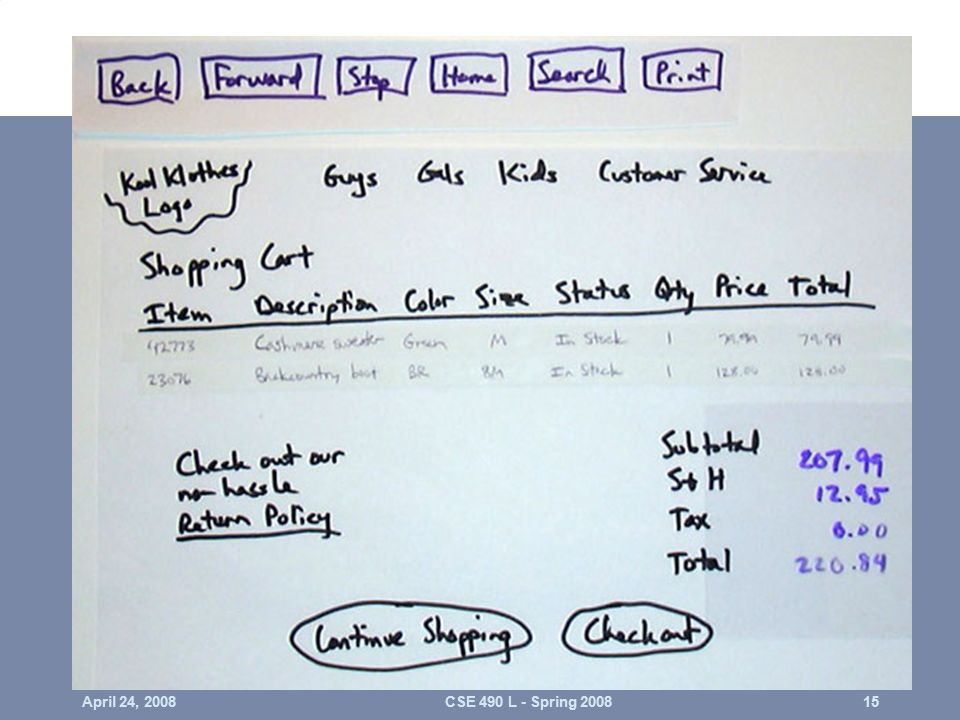 Back Forward Stop Home Search Print
Kool Klothes Guys Gals Kids Customer Service
Logo
Shopping Cart
Item Description Color Size Status Qty Price Total
42773 Cashmere sweater Green M In Stock 1 79.99 79.99
23076 boot BR 8M In Stock 1 128.00 128.00
Check out our Subtotal 207.99
no hassle S+H 12.95
Return Policy Tax 0.00
Total 220.84
Continue Shopping Checkout
April 24, 2008 CSE 490 L - Spring 2008 15